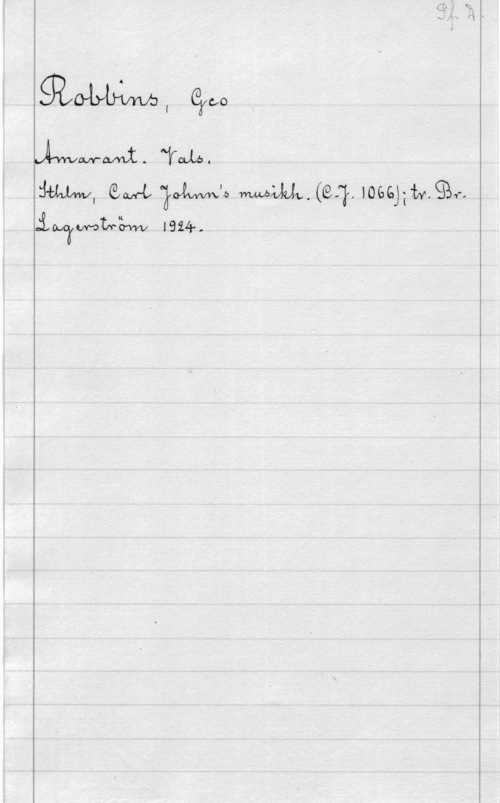 Pf. A.
Robbins, Geo
Amarant. Vals.
Sthlm, Carl Johnn's musikh. (C.J. 1066); tr. Br.
Lagerström 1924.